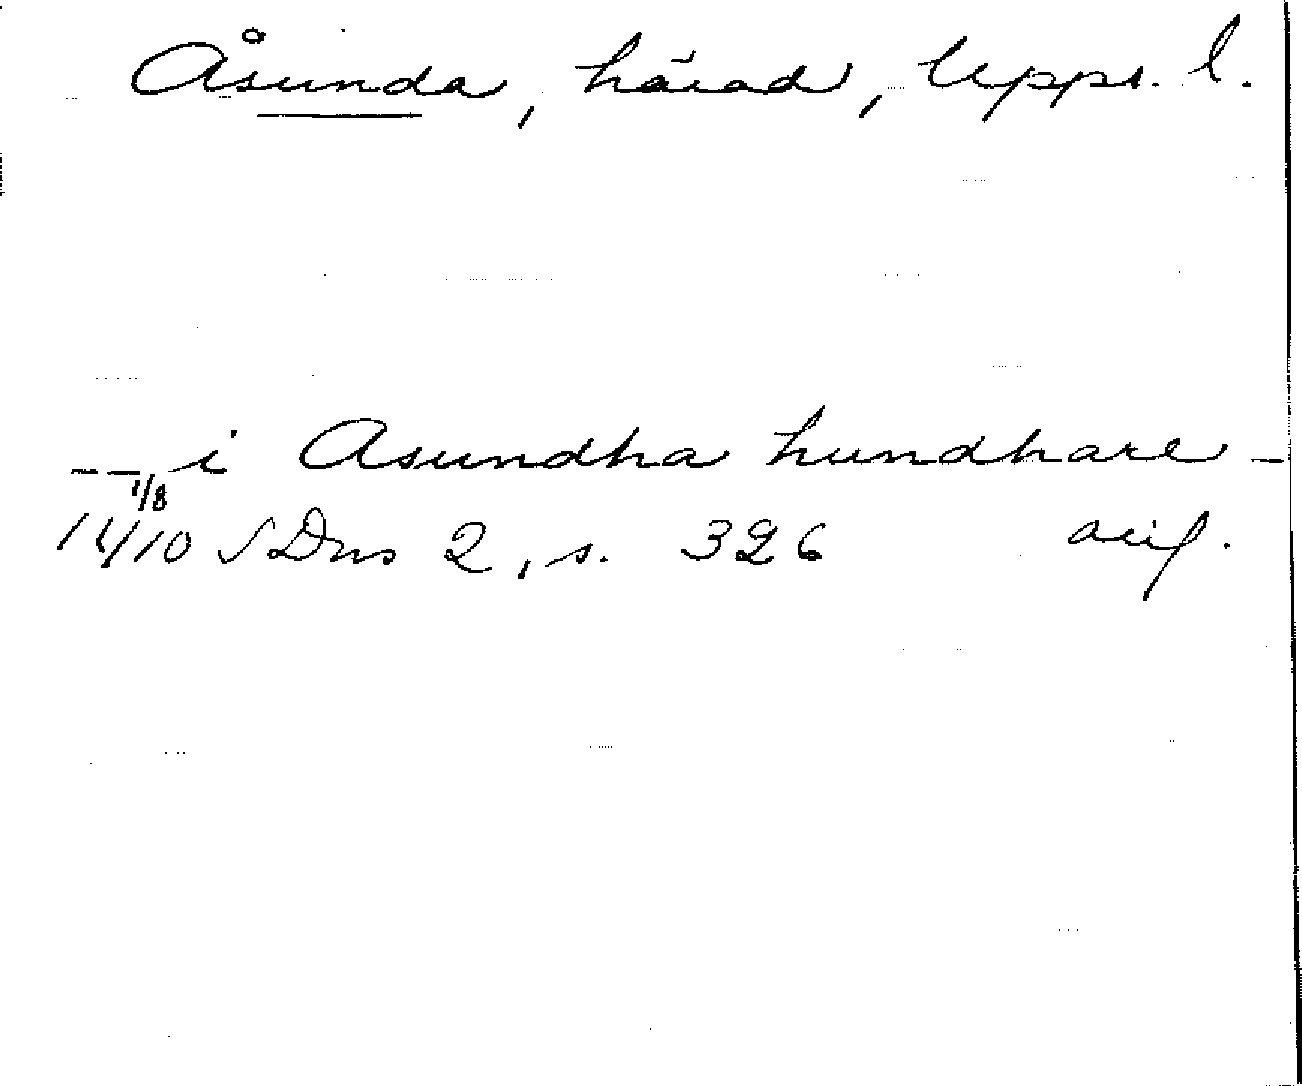 Åsunda, härad, Upps. l.
- - i Asundha hundhare -
1/8
1410 SDns 2, s. 326 avs.